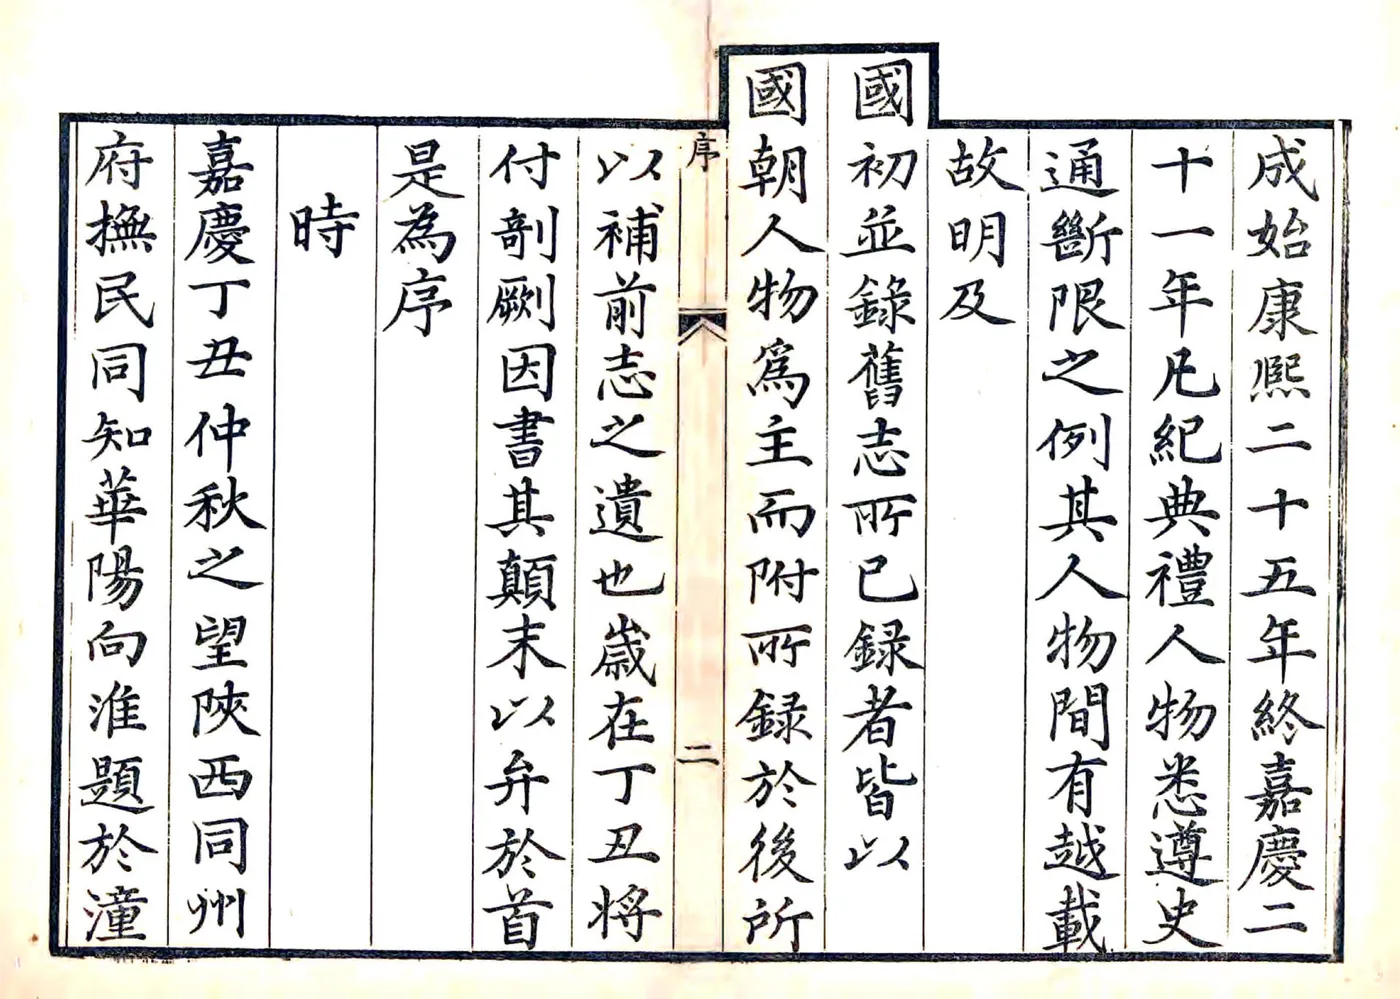 成始康熙二十五年終嘉慶二
十一年凡紀典禮人物悉遵史
通斷限之例其人物間有越載
故明及
國初並錄舊志所已録者皆以
國朝人物爲主而附所録於後所
序
二
以補前志之遺也嵗在丁丑将
付剞劂因書其顛末以弁於首
是為序
時
嘉慶丁丑仲秋之望陝西同州
府撫民同知華陽向淮題於潼